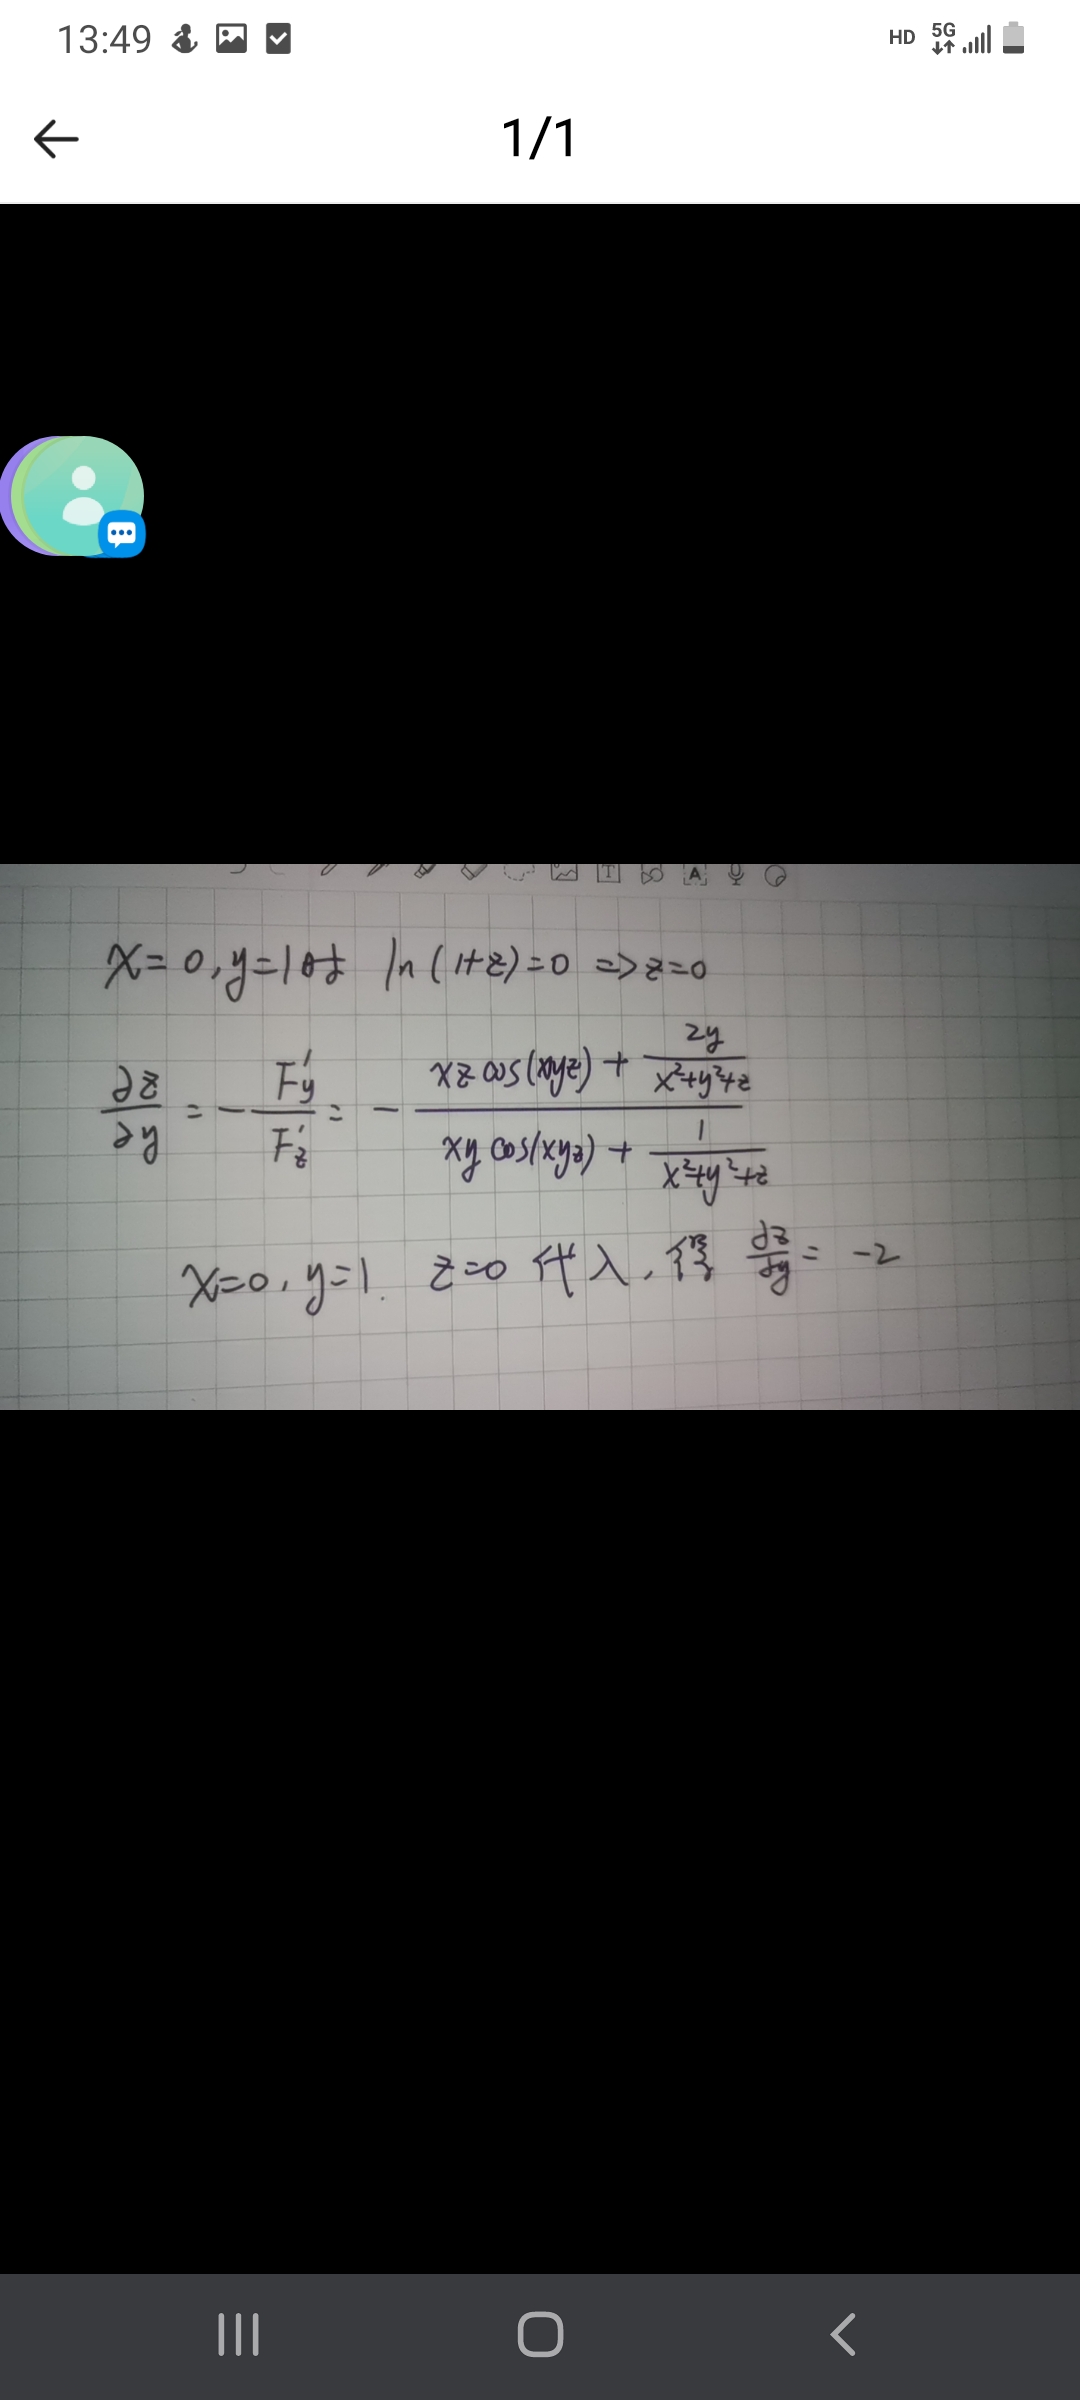 13:49 HD 5G
1/1
x=0,y=1时 ln(1+z)=0 => z=0
∂z/∂y = - F'y/F'z = - (xz cos(xyz) + 2y/(x²+y²+z)) / (xy cos(xyz) + 1/(x²+y²+z))
x=0, y=1. z=0 代入, 得 ∂z/∂y = -2